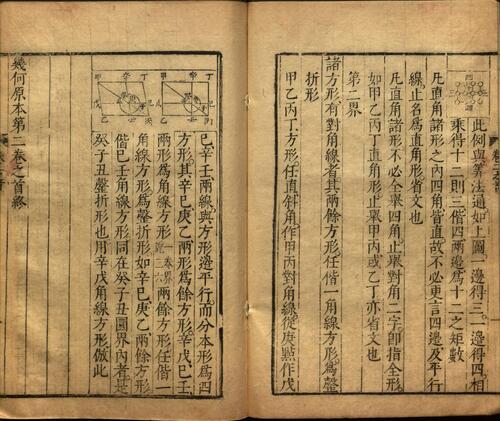 此例與算法通如上圖一邊得三一邊得四相
乘得十二則三偕四兩邊爲十二之矩數
凡直角諸形之内四角皆直故不必更言四邊及平行
線止名爲直角形省文也
凡直角諸形不必全舉四角止舉對角二字即指全形
如甲乙丙丁直角形止舉甲丙或乙丁亦省文也
第二界
諸方形有對角線者其兩餘方形任偕一角線方形爲罄
折形
甲乙丙丁方形任直斜角作甲丙對角線從庚點作戊
己辛壬兩線與方形邊平行而分本形爲四
方形其辛己庚乙兩形爲餘方形辛戊己壬
兩形爲角線方形一卷界說三六兩餘方形任偕一
角線方形爲罄折形如辛己庚乙兩餘方形
偕己壬角線方形同在癸子丑圜界内者是
癸子丑罄折形也用辛戊角線方形倣此
幾何原本第二卷之首終